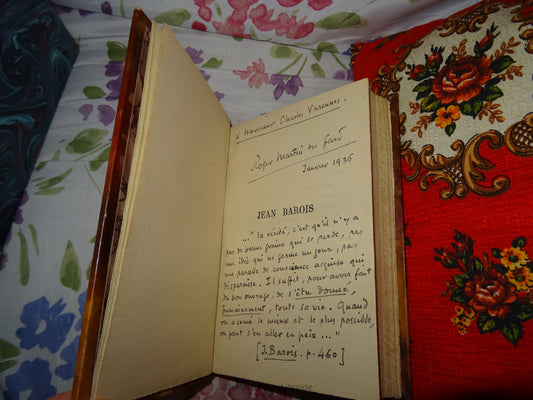 à Monsieur Charles Varennes.
Roger Martin du Gard
Janvier 1936
JEAN BAROIS
..." la vérité, c'est qu'il n'y a
pas de bonne graine qui se perde, pas
une idée qui ne germe un jour, pas
une parcelle de conscience acquise qui
disparaisse. Il suffit, pour avoir fait
du bon ouvrage, de s'être donné,
purement, toute sa vie. Quand
on a semé le mieux et le plus possible,
on peut s'en aller en paix..."
[J. Barois. p. 460]